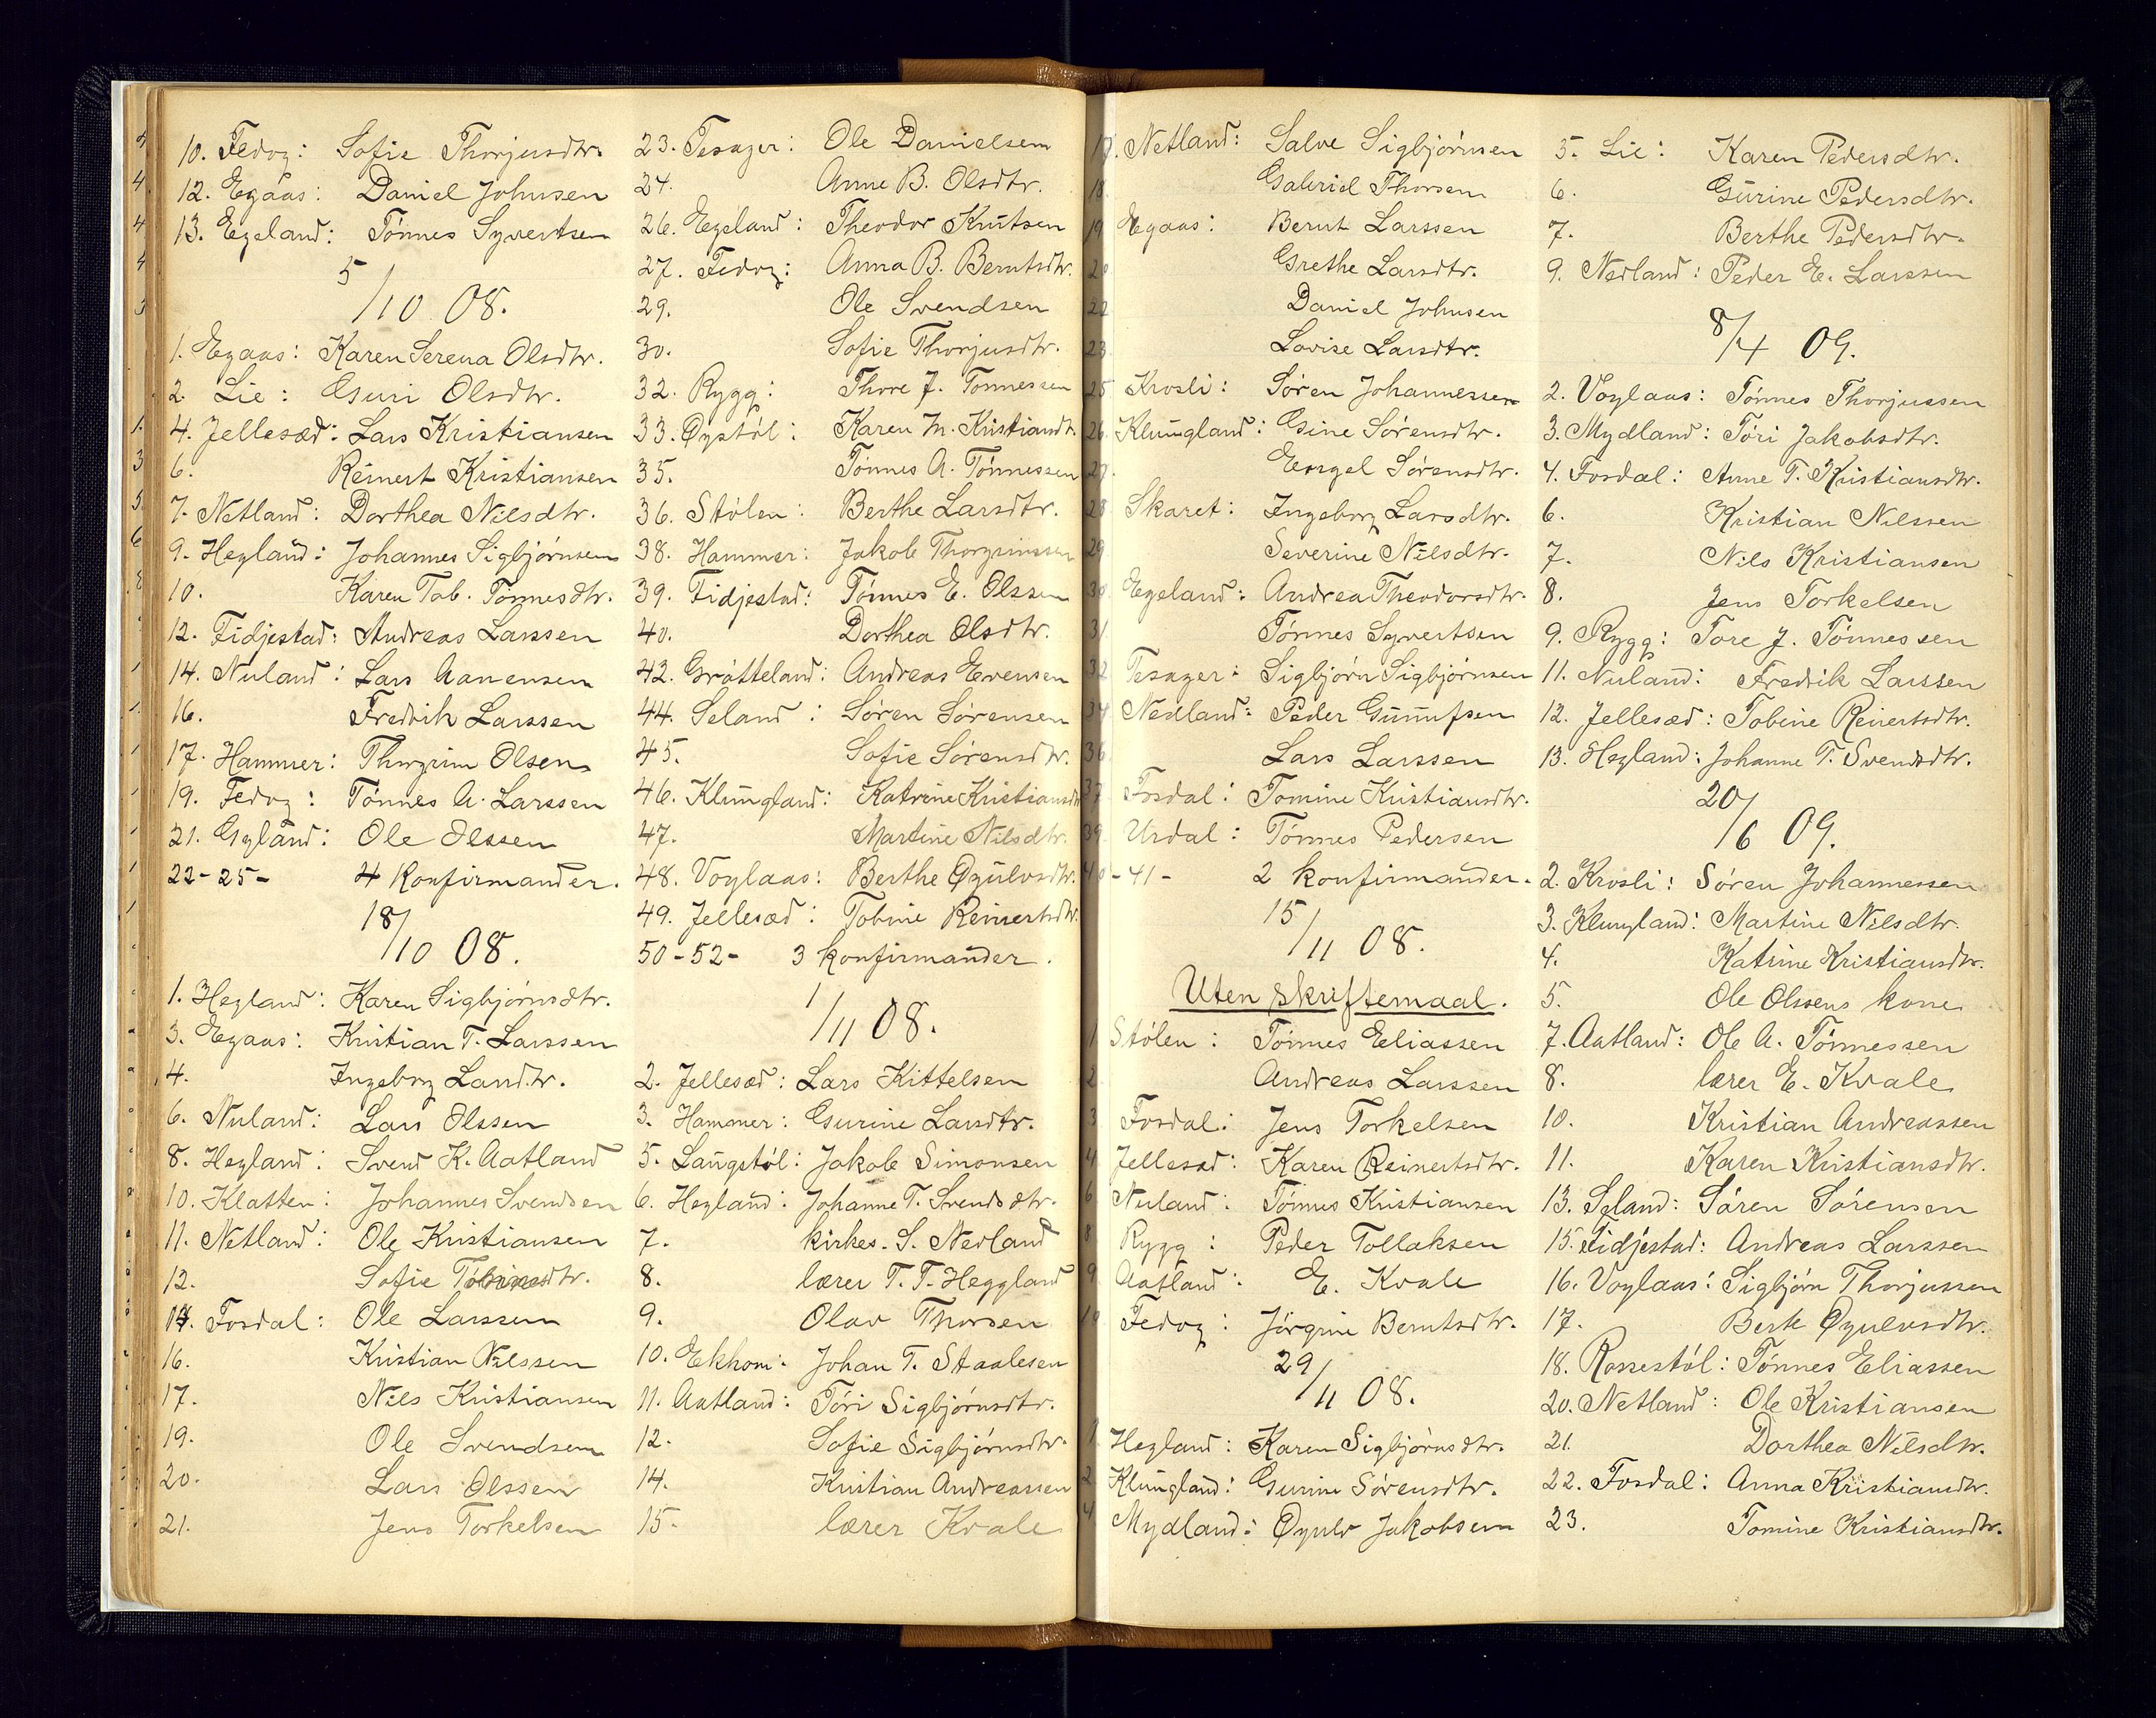 10. Fedog: Sofie Thorjusdtr.
12. Egaas: Daniel Johnsen
13. Egeland: Tönnes Syvertsen
5/10 08.
1. Egaas: Karen Serena Olsdtr.
2. Lie: Guri Olsdtr.
4. Jellesæd: Lars Kristiansen
6. Reinert Kristiansen
7. Netland: Dorthea Nilsdtr.
9. Hegland: Johannes Sigbjörnsen
10. Karen Tob. Tönnesdtr.
12. Fidjestad: Andreas Larssen
14. Nuland: Lars Aanensen
16. Fredrik Larssen
17. Hammer: Thorgrim Olsen
19. Fedog: Tönnes A. Larssen
21. Gyland: Ole Olssen
22-25- 4 Konfirmander.
18/10 08.
1. Hegland: Karen Sigbjörnsdtr.
3. Egaas: Kristian T. Larssen
4. Ingeborg Larsdtr.
6. Nuland: Lars Olssen
8. Hegland: Svend K. Aatland
10. Klatten: Johannes Svendsen
11. Netland: Ole Kristiansen
12. Sofie Tobinesdtr.
14. Fosdal: Ole Larssen
16. Kristian Nilssen
17. Nils Kristiansen
19. Ole Svendsen
20. Lars Olssen
21. Jens Torkelsen
23. Tesager: Ole Danielsen
24. Anne B. Olsdtr.
26. Egeland: Theodor Knutsen
27. Fedog: Anna B. Berntsdtr.
29. Ole Svendsen
30. Sofie Thorjusdtr.
32. Rygg: Thore J. Tönnessen
33. Øystöl: Karen M. Kristiansdtr.
35. Tönnes A. Tönnessen
36. Stölen: Berthe Larsdtr.
38. Hammer: Jakob Thorgrimssen
39. Fidjestad: Tönnes E. Olssen
40. Dorthea Olsdtr.
42. Gråtteland: Andreas Evensen
44. Seland: Sören Sörensen
45. Sofie Sörensdtr.
46. Klungland: Katrine Kristiansdtr
47. Martine Nilsdtr.
48. Voglaas: Berthe Øyulvsdtr.
49. Jellesæd: Tobine Reinertsdtr.
50-52- 3 konfirmander.
1/11 08.
2. Jellesæd: Lars Kittelsen
3. Hammer: Gurine Larsdtr.
5. Langstöl: Jakob Simonsen
6. Hegland: Johanne T. Svendsdtr.
7. kirkes. S. Nedland
8. lærer T. T. Heggland
9. Olav Thorsen
10. Ekhom: Johan T. Staalesen
11. Aatland: Töri Sigbjörnsdtr.
12. Sofie Sigbjörnsdtr.
14. Kristian Andreassen
15. lærer Kvale
17. Netland: Salve Sigbjörnsen
18. Gabriel Thorsen
19 Egaas: Bernt Larssen
20 Grethe Larsdtr.
22 Daniel Johnsen
23 Lovise Larsdtr.
25 Krosli: Sören Johannessen
26. Klungland: Gine Sörensdtr.
27. Engel Sörensdtr.
28 Skaret: Ingeborg Larsdtr.
29 Severine Nilsdtr.
30 Egeland: Andrea Theodorsdtr.
31 Tönnes Syvertsen
32 Tesager: Sigbjörn Sigbjörnsen
34 Nedland: Peder Gunnufsen
36 Lars Larssen
37 Fosdal: Tomine Kristiansdtr.
39. Urdal: Tönnes Pedersen
40-41- 2 konfirmander.
15/11 08.
Uten skriftemaal.
1 Stölen: Tönnes Eeliassen
2 Andreas Larssen
3 Fosdal: Jens Torkelsen
4 Jellesæd: Karen Reinertsdtr.
6 Nuland: Tönnes Kristiansen
8 Rygg: Peder Tollaksen
9 Aatland: E. Kvale
10 Fedog: Jörgine Berntsdtr.
29/11 08.
1 Hegland: Karen Sigbjörnsdtr.
2. Klungland: Gurine Sörensdtr.
4 Mydland: Øyulv Jakobsen
5. Lie: Karen Pedersdtr.
6. Gurine Pedersdtr.
7. Berthe Pedersdtr.
9. Nedland: Peder E. Larssen
8/4 09.
2. Voglaas: Tönnes Thorjussen
3. Mydland: Töri Jakobsdtr.
4. Fosdal: Anne T. Kristiansdtr.
6. Kristian Nilssen
7. Nils Kristiansen
8. Jens Torkelsen
9. Rygg: Tore J. Tönnessen
11. Nuland: Fredrik Larssen
12. Jellesæd: Tobine Reinertsdtr.
13. Hegland: Johanne T. Svendsdtr.
20/6 09.
2. Krosli: Sören Johannessen
3. Klungland: Martine Nilsdtr.
4. Katrine Kristiansdtr.
5. Ole Olssens kone
7. Aatland: Ole A. Tönnessen
8. lærer E. Kvale
10. Kristian Andreassen
11. Karen Kristiansdtr.
13. Seland: Sören Sörensen
15. Fidjestad: Andreas Larssen
16. Voglaas: Sigbjörn Thorjussen
17. Berte Øyulvsdtr.
18. Rossestöl: Tönnes Eliassen
20. Netland: Ole Kristiansen
21. Dorthea Nilsdtr.
22. Fosdal: Anna Kristiansdtr.
23. Tomine Kristiansdtr.